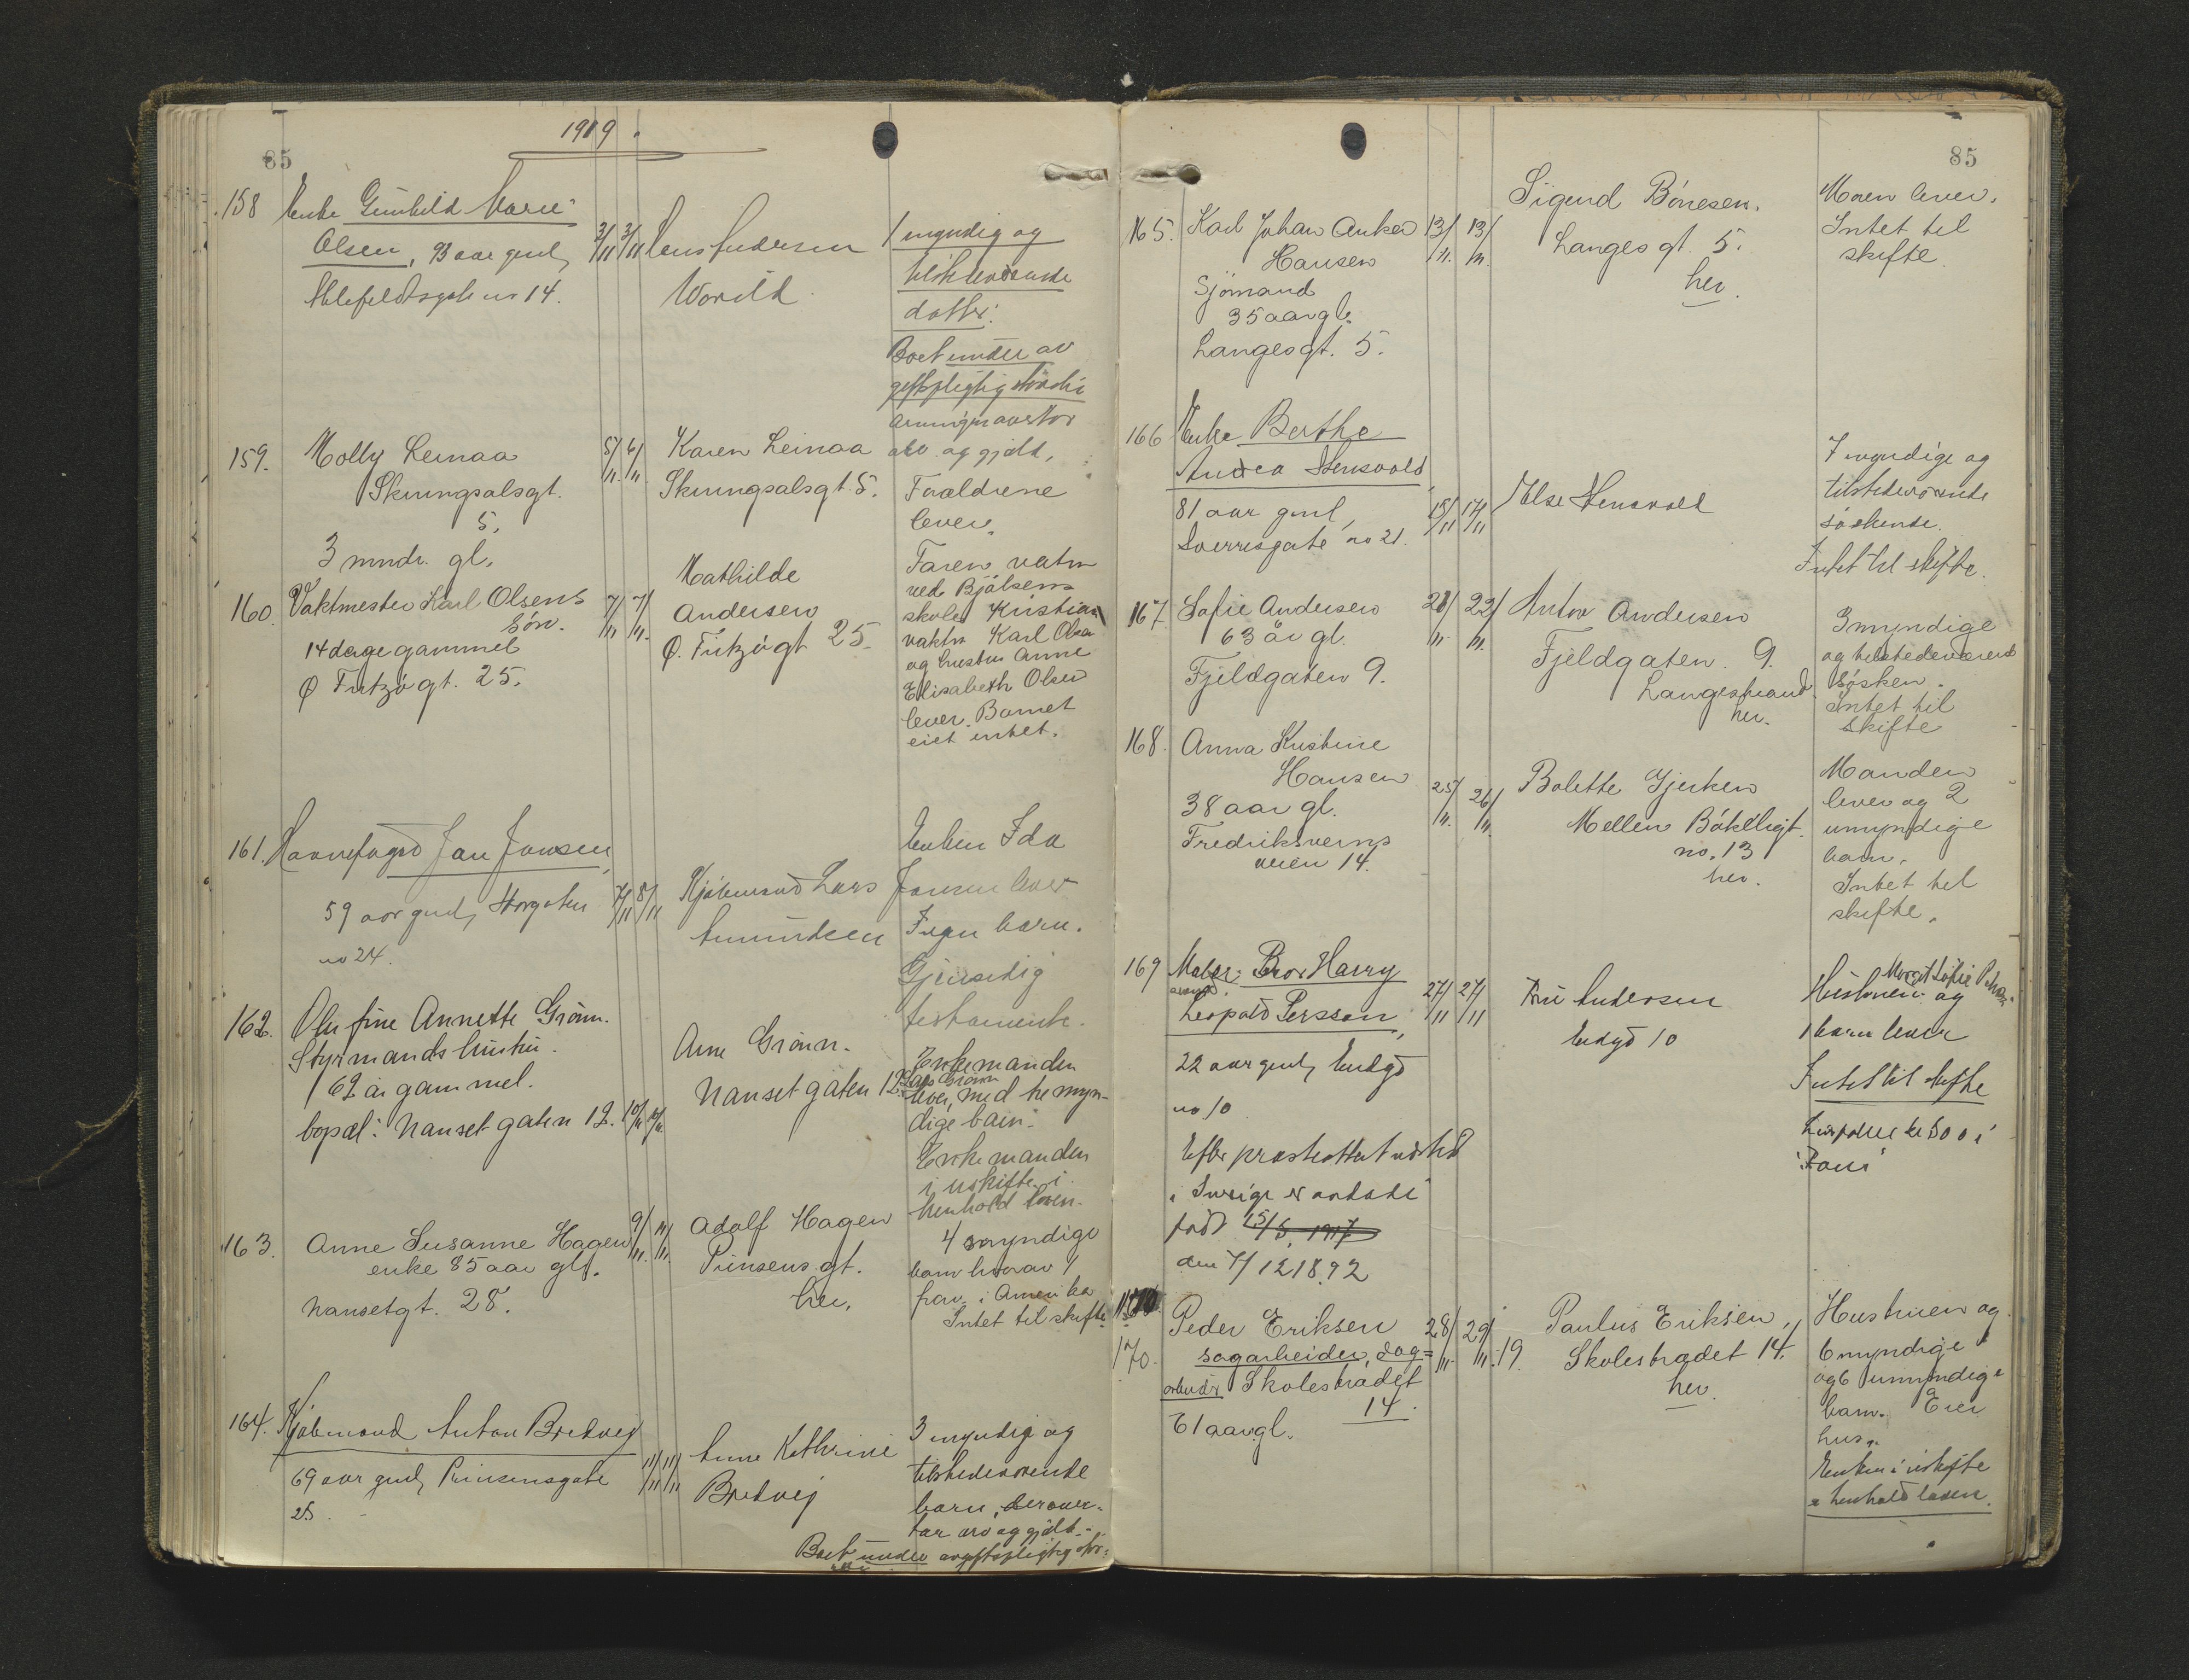 1919.
85
158 Enke Gunhild Marie
Olsen, 93 aar gml,
Ahlefeldtsgate no 14.
3/11 3/11
Lars Andersen
Vorild
1 myndig og
tilstedeværende
datter.
Boet under av
giftspligtig størrelse
Arvingen overtar
arv og gjeld.
159. Molly Leinaa
Skiringsalsgt.
5.
3 mndr. gl.
5/11. 6/11.
Karen Leinaa
Skiringsalsgt. 5.
Forældrene
lever.
160. Vaktmester Karl Olsens
sön.
14 dage gammel
Ø Fritzøgt. 25.
7/11 7/11.
Mathilde
Andersen
Ø. Fritzøgt 25.
Faren vaktm
ved Bjölsens
skole, Kristian
vaktm Karl Olsen
og hustru Anne
Elisabeth Olsen
lever. Barnet
eiet intet.
161. Havnefoged Jan Jansen,
59 aar gml, Storgaten
no 24.
7/11 8/11
Kjøbmand Lars
Amundsen
Enken Ida
Jansen lever
Ingen barn.
Gjensidig
testamente.
162. Olufine Annette Grönn.
Styrmands hustru.
62 år gammel.
bopæl: Nansetgaten 12.
10/11 10/11.
Arne Grönn.
Nansetgaten 12.
Enkemanden
Lars Grönn
lever, med tre myn-
dige barn.
Enkemanden
i uskifte i
henhold loven.
163. Anne Susanne Hagen
enke 85 aar gl.
Nansetgt. 28.
9/11. 11/11.
Adolf Hagen
Prinsensgt.
her.
4 myndige
barn hvorav 1
frav. i Amerika
Intet til skifte.
164. Kjøbmand Anton Bredvej
69 aar gml, Prinsensgate
25.
11/11 11/11
Anne Kathrine
Bredvej
3 myndige og
tilstedeværende
barn, der over-
tar arv og gjeld.
Boet under avgiftspligtig stør-
relse
85
165. Karl Johan Anker
Hansen
Sjömand
35 aar gl.
Langesgt. 5.
13/11. 13/11.
Sigurd Bönesen.
Langesgt. 5.
her.
Moren lever.
Intet til
skifte.
166 Enke Berthe
Andrea Stensvold,
81 aar gml,
Sverresgate no 21.
15/11 17/11
Else Stensvold
7 myndige og
tilstedeværende
søskende.
Intet til skifte.
167. Sofie Andersen
63 år gl.
Fjeldgaten 9.
20/11. 22/11.
Anton Andersen
Fjeldgaten. 9.
Langestrand.
her.
3 myndige
og tilstedeværende
søsken.
Intet til
skifte
168. Anna Kristine
Hansen
38 aar gl.
Fredriksverns
veien 14.
25/11. 26/11.
Bolette Gjerken
Mellem Bökeligt.
no. 13
her.
Manden
lever og 2
umyndige
barn.
Intet til
skifte.
169 Maler: Bror Harry
Leopold Persson,
22 aar gml, Endgd
no 10
Efter præsteattest utsted
i Sverige er avdøde
født 15/5. 1917
den 7/12 1892
27/11 27/11
Fru Andersen
Endgd 10
Hustruen Margit Sofie og
1 barn lever
Intet til skifte
170.
Peder Eriksen
sagarbeider, dag=
arbeider Skolestrædet
14.
61 aar gl.
28/11. 29/11. 19.
Paulus Eriksen,
Skolestrædet 14.
her.
Hustruen og
6 myndige
og 6 umyndige
barn. Eier
hus.
Enken i uskifte
i henhold loven.